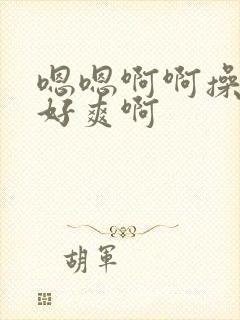 嗯嗯啊啊操
好爽啊
胡军